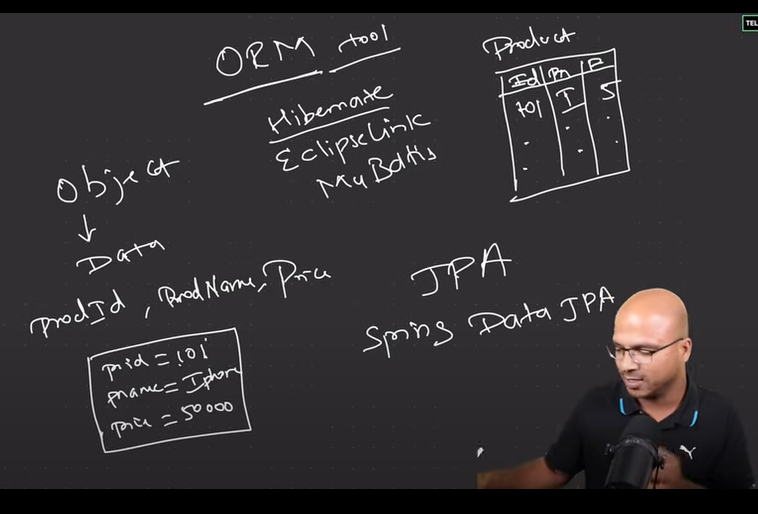 ORM tool
Hibernate
EclipseLink
MyBatis
Product
Id Pn P
101 I 5
Object
↓
Data
prodId, ProdName, Price
prid = 101
pname = Iphone
price = 50000
JPA
Spring Data JPA
TEL